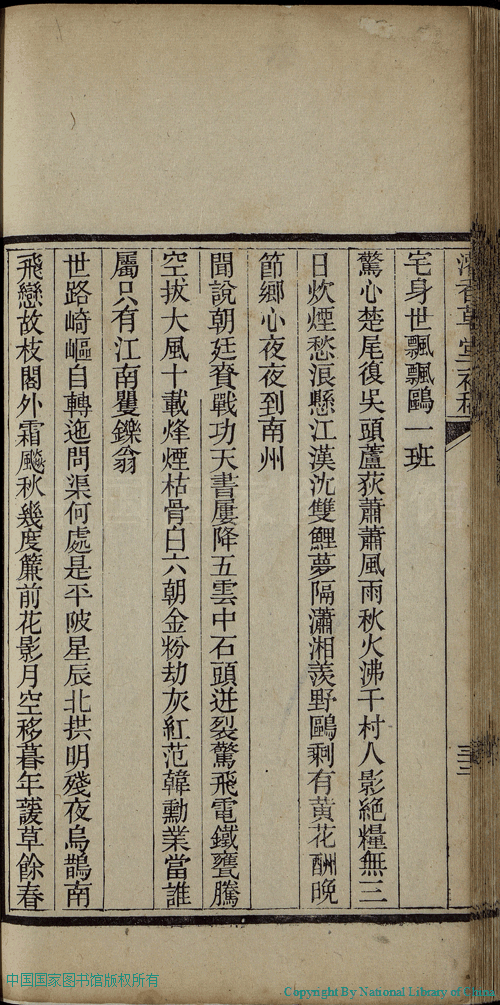 宅身世飄飄鷗一班
驚心楚尾復吳頭蘆荻蕭蕭風雨秋火沸千村人影絕糧無三
日炊煙愁浪懸江漢沈雙鯉夢隔瀟湘羨野鷗剩有黄花酬晚
節鄉心夜夜到南州
聞說朝廷賚戰功天書屢降五雲中石頭迸裂驚飛電鐵甕騰
空拔大風十載烽煙枯骨白六朝金粉劫灰紅范韓勳業當誰
屬只有江南矍鑠翁
世路崎嶇自轉迤問渠何處是平陂星辰北拱明殘夜烏鵲南
飛戀故枝閣外霜飈秋幾度簾前花影月空移暮年護草餘春
中国国家图书馆版权所有
Copyright By National Library of China